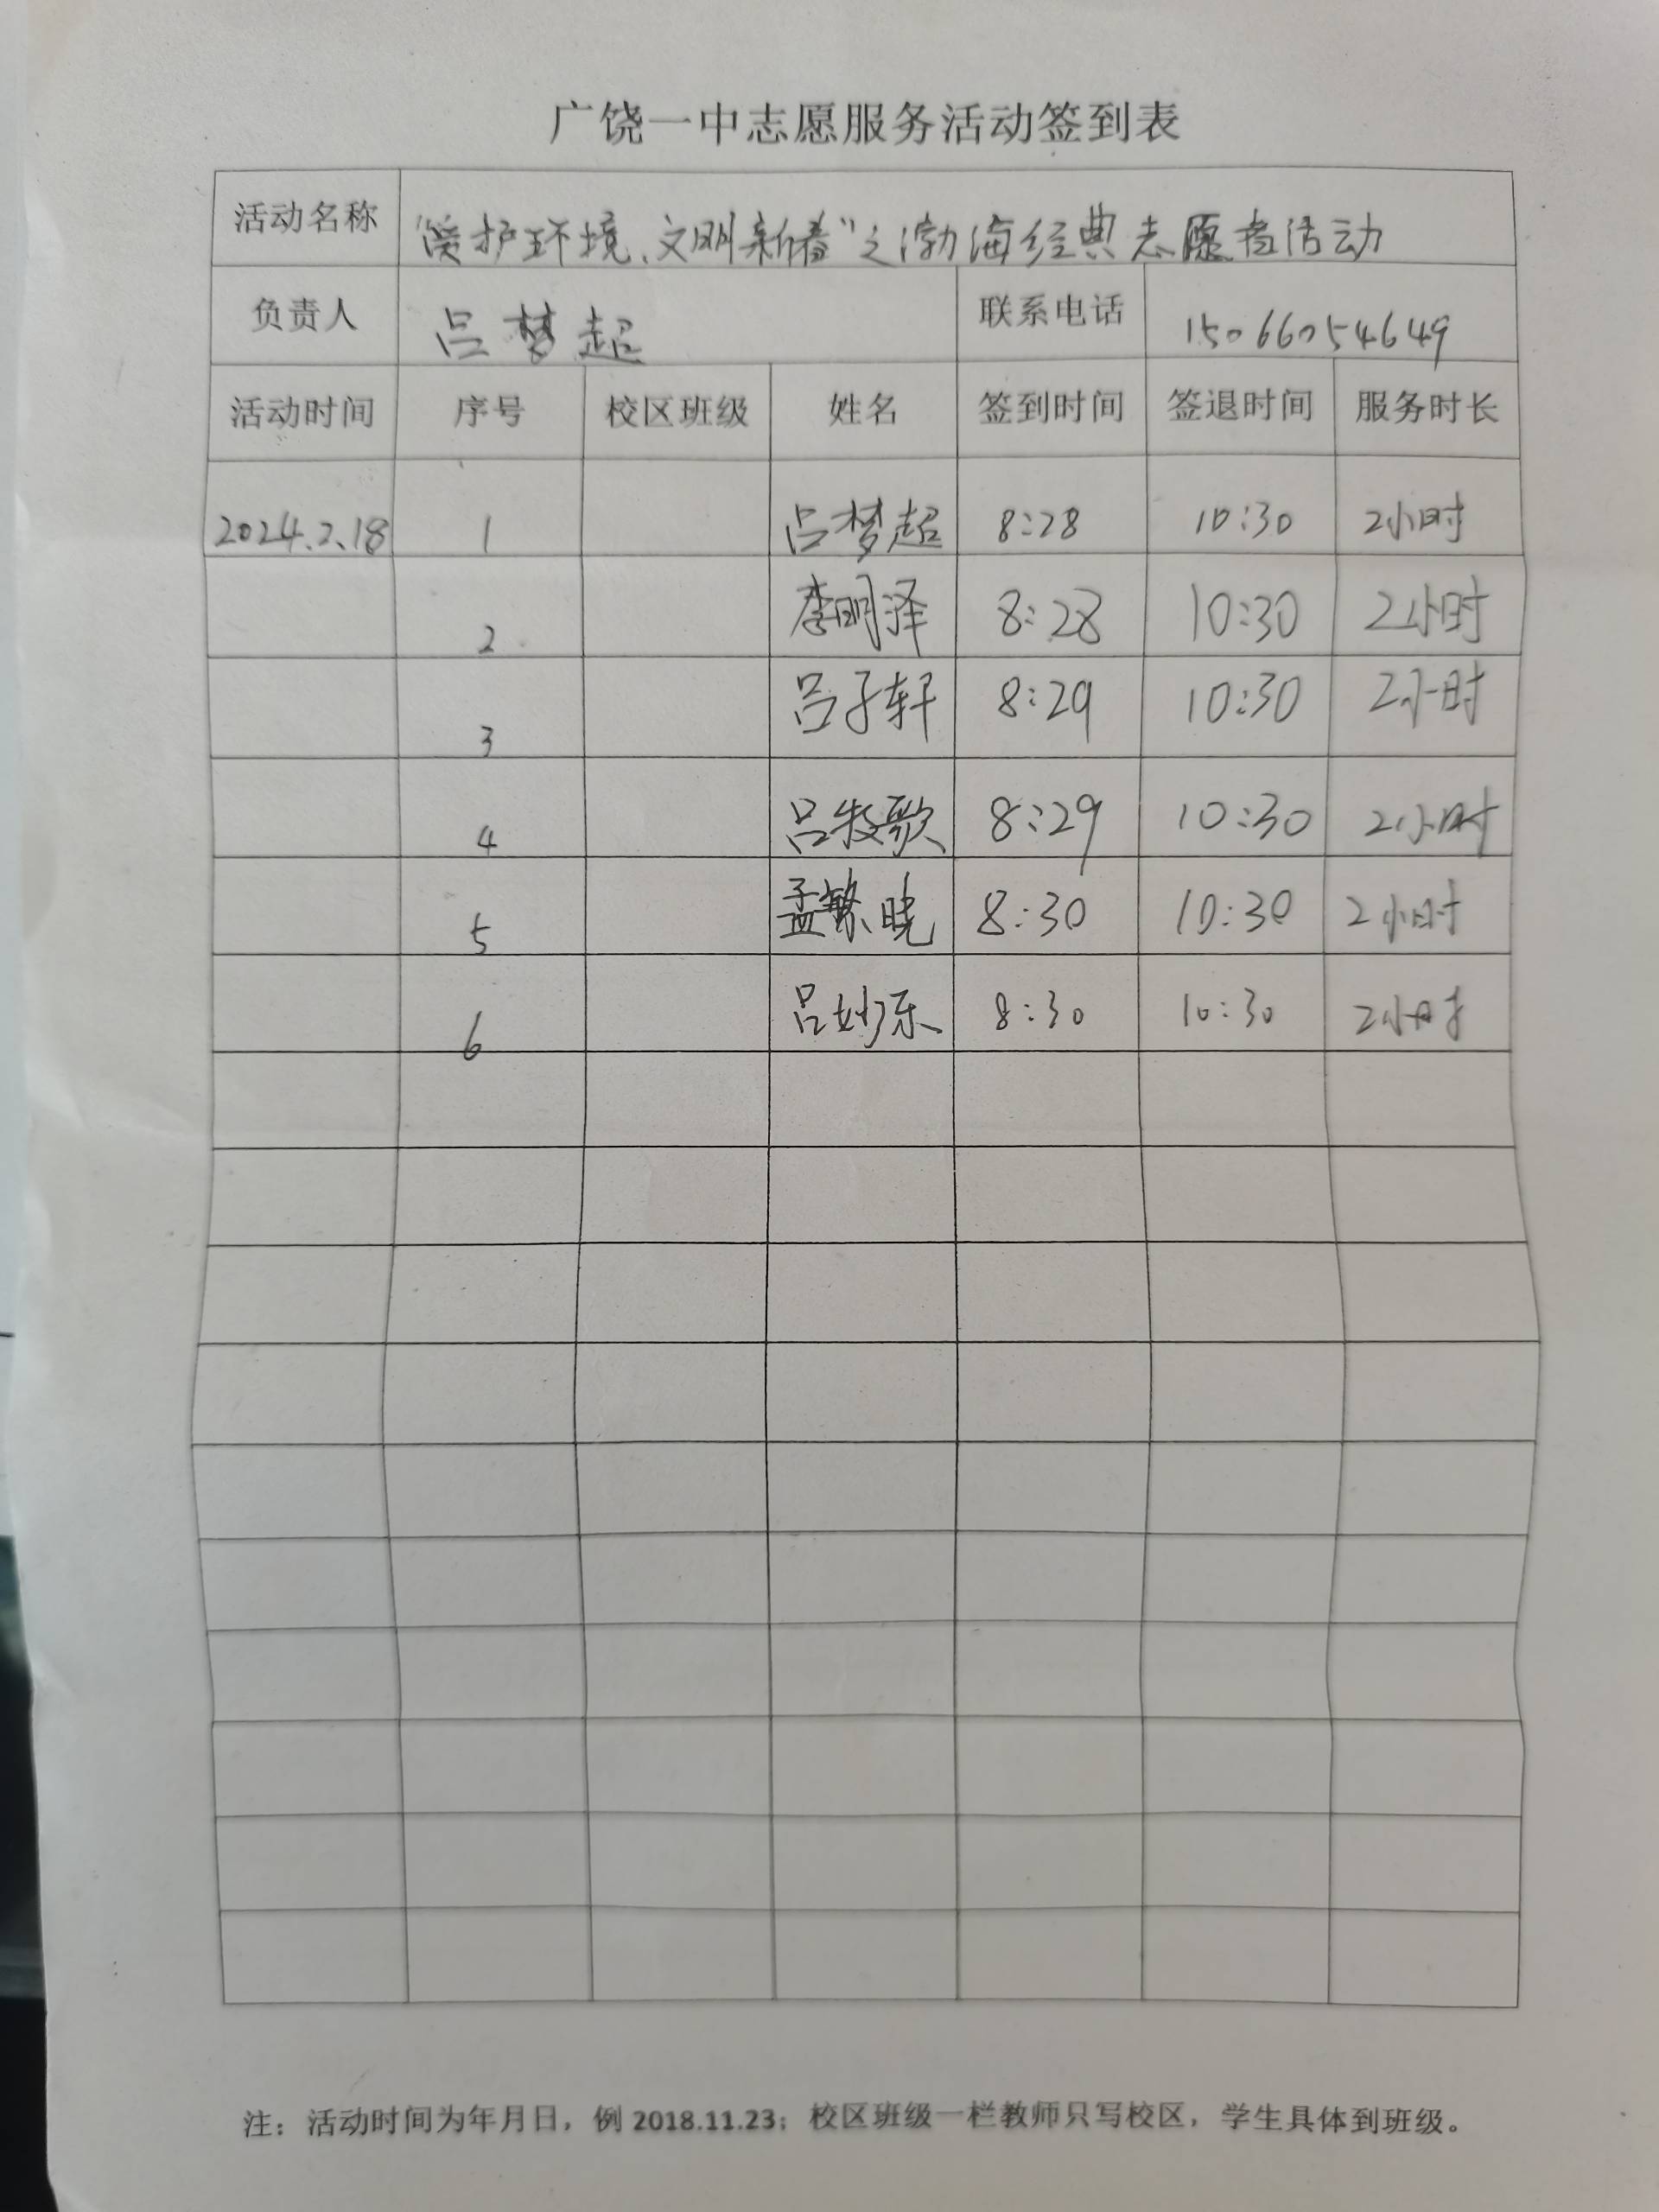 广饶一中志愿服务活动签到表
活动名称 “爱护环境、文明新春”之渤海经典志愿者活动
负责人 吕梦超 联系电话 15066054649
活动时间 序号 校区班级 姓名 签到时间 签退时间 服务时长
2024.2.18 1 吕梦超 8:28 10:30 2小时
2 李明泽 8:28 10:30 2小时
3 吕子轩 8:29 10:30 2小时
4 吕牧歌 8:29 10:30 2小时
5 孟繁晓 8:30 10:30 2小时
6 吕妙乐 8:30 10:30 2小时
注：活动时间为年月日，例 2018.11.23；校区班级一栏教师只写校区，学生具体到班级。